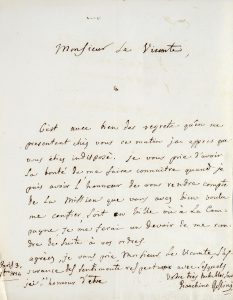 Monsieur Le Vicomte,
C'est avec bien des regrets qu'en me
presentant chez vous ce matin j'ai appris que
vous êtes indisposé. Je vous prie d'avoir
la bonté de me faire connaître quand je
puis avoir l'honneur de vous rendre compte
de la Mission que vous avez bien voulu
me confier, soit en Ville ou a La Cam-
pagne je me ferai un devoir de me ren-
dre de suite à vos ordres.
agréez, je vous prie Monsieur le Vicomte l'as-
surance des sentiments respectueux avec lesquels
j'ai l'honneur d'être
Votre très humble Serv
Gioachino Rossini